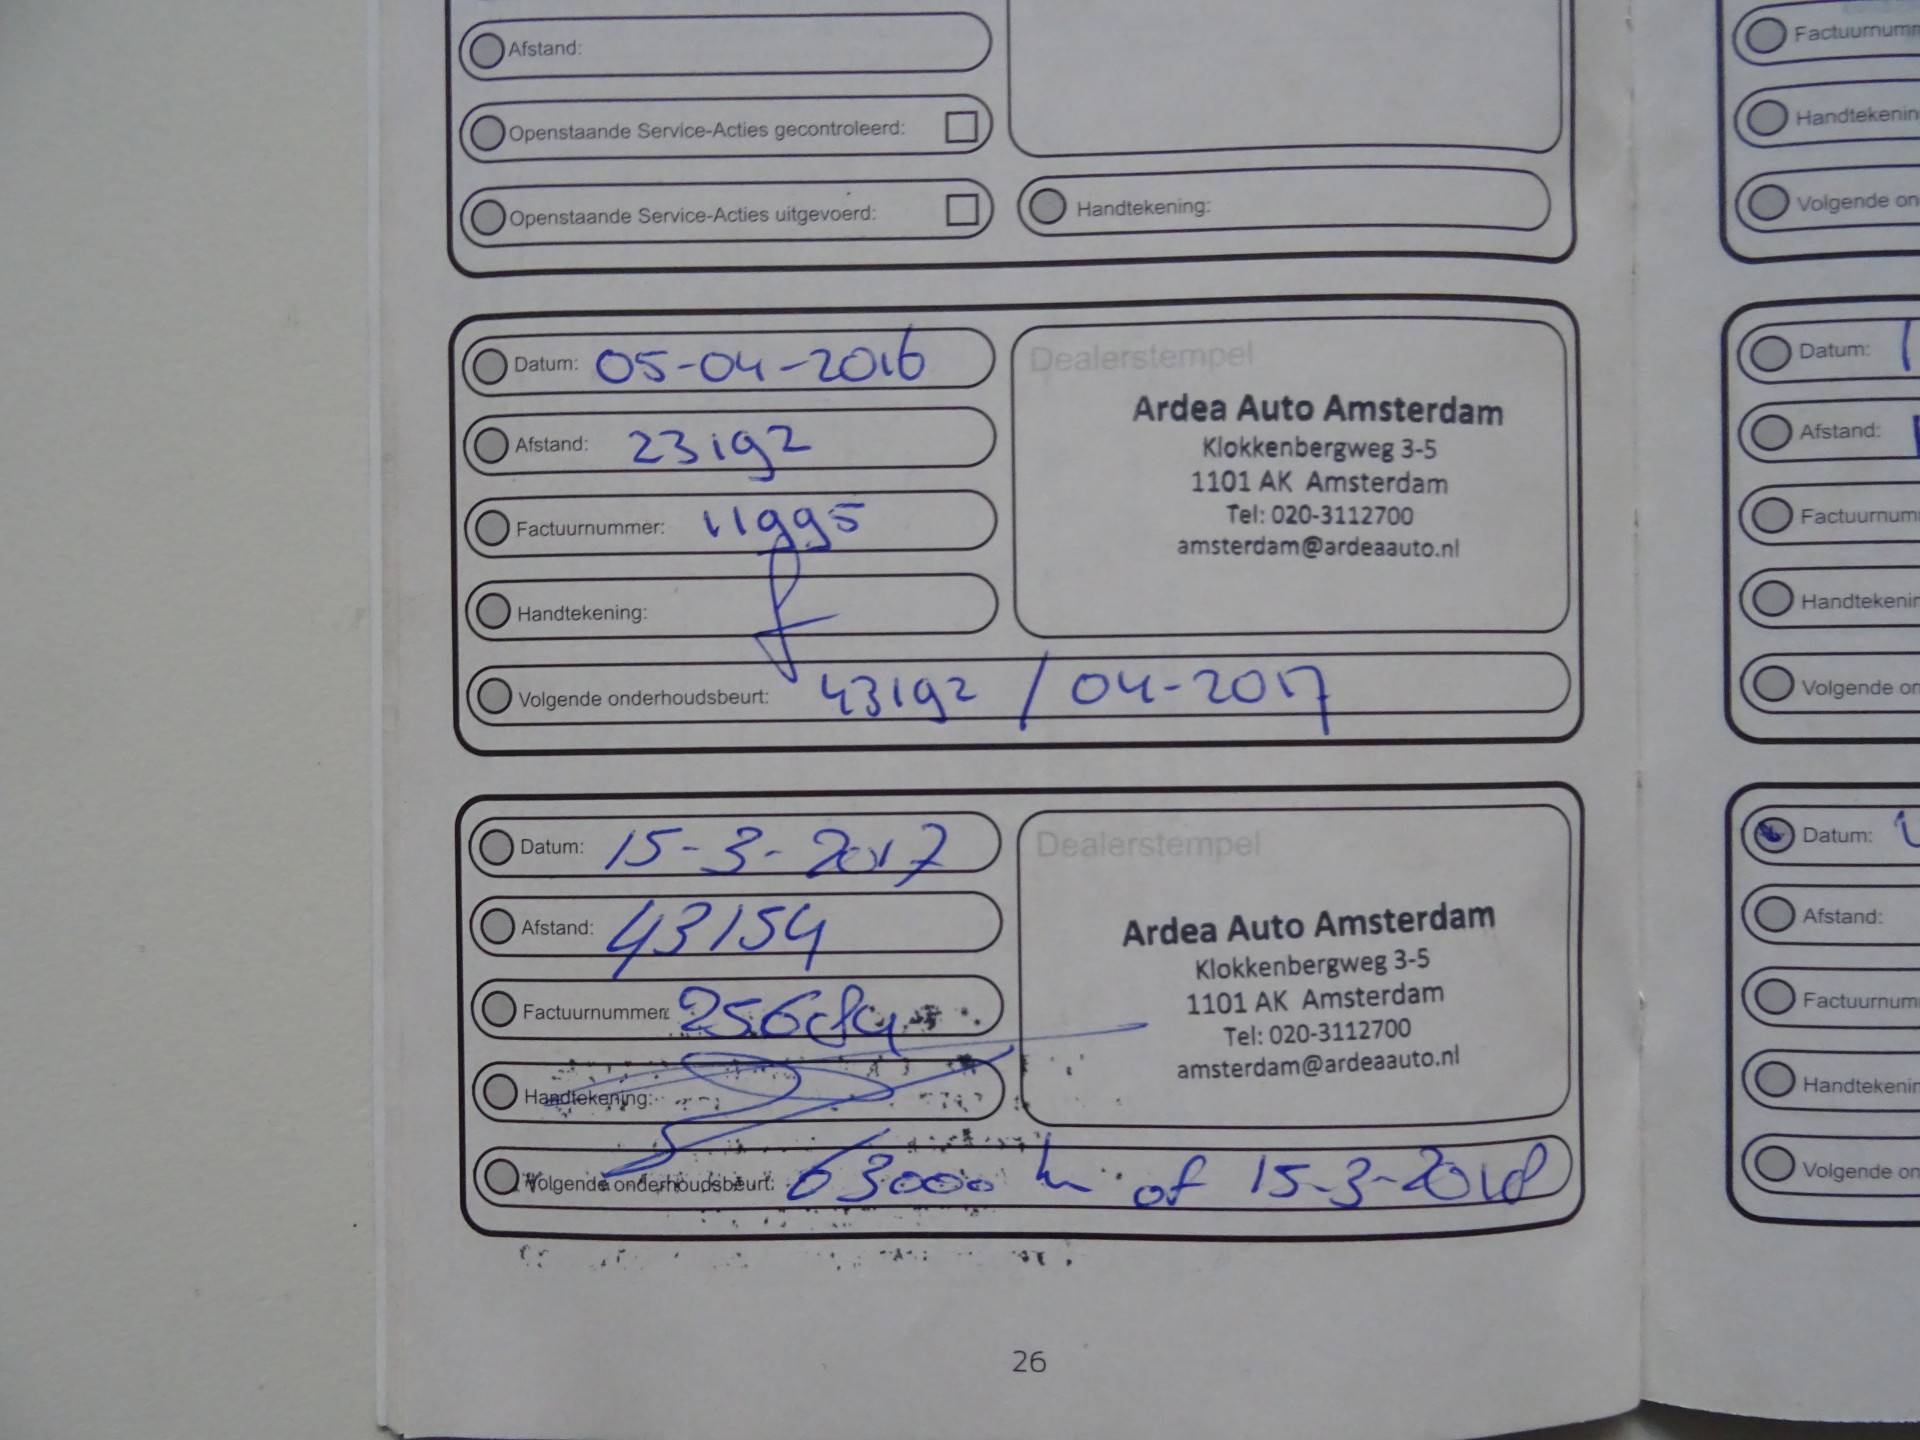 Afstand:
Openstaande Service-Acties gecontroleerd:
Openstaande Service-Acties uitgevoerd:
Handtekening:
Datum: 05-04-2016
Afstand: 23192
Factuurnummer: 11995
Handtekening:
Volgende onderhoudsbeurt: 43192 / 04-2017
Dealerstempel
Ardea Auto Amsterdam
Klokkenbergweg 3-5
1101 AK Amsterdam
Tel: 020-3112700
amsterdam@ardeaauto.nl
Datum: 15-3-2017
Afstand: 43154
Factuurnummer:
Handtekening:
Volgende onderhoudsbeurt: 63000 km of 15-3-2018
Dealerstempel
Ardea Auto Amsterdam
Klokkenbergweg 3-5
1101 AK Amsterdam
Tel: 020-3112700
amsterdam@ardeaauto.nl
26
Factuurnumm
Handtekenin
Volgende on
Datum:
Afstand:
Factuurnum
Handtekenin
Volgende on
Datum:
Afstand:
Factuurnum
Handtekenin
Volgende on